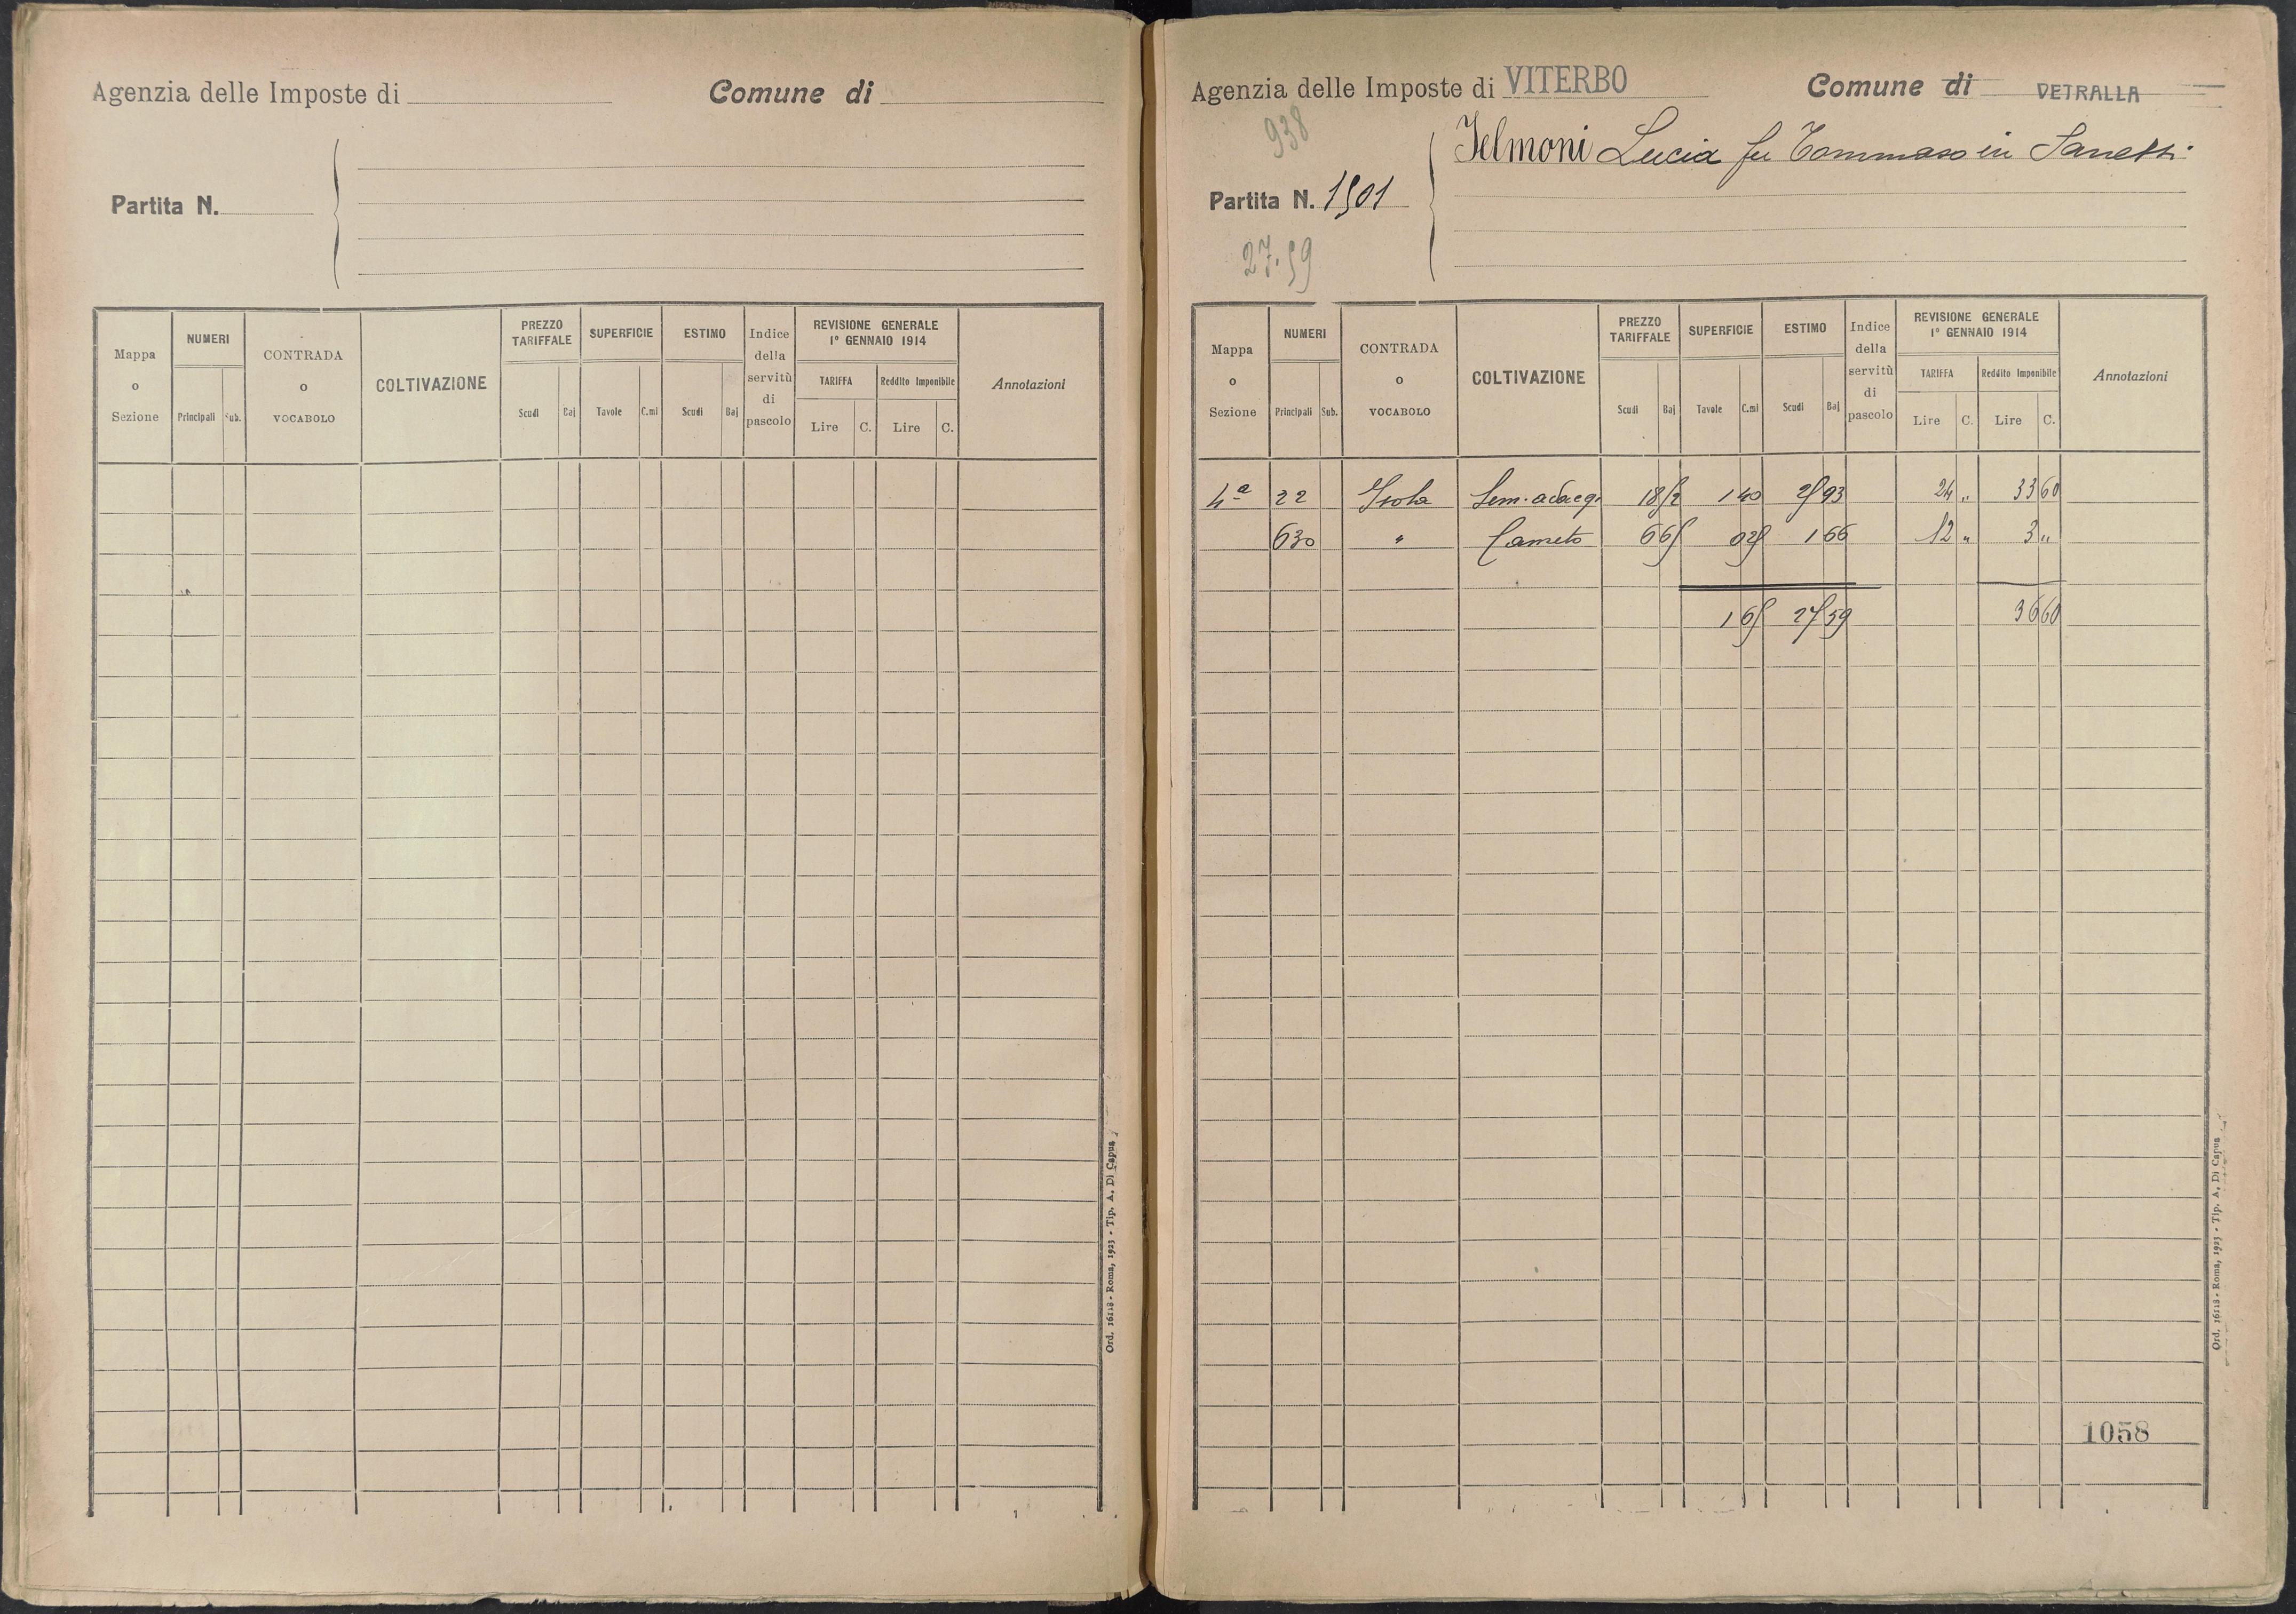 Agenzia delle Imposte di
Comune di
Partita N.
Mappa o Sezione
NUMERI
Principali
Sub.
CONTRADA o VOCABOLO
COLTIVAZIONE
PREZZO TARIFFALE
Scudi
Baj
SUPERFICIE
Tavole
C.mi
ESTIMO
Scudi
Baj
Indice della servitù di pascolo
REVISIONE GENERALE
1° GENNAIO 1914
TARIFFA
Lire
C.
Reddito Imponibile
Lire
C.
Annotazioni
Ord. 16118 - Roma, 1923 - Tip. A. Di Capua
Agenzia delle Imposte di VITERBO
Comune di VETRALLA
938
Partita N. 1501
Lucia fu Tommaso in
27.59
Mappa o Sezione
NUMERI
Principali
Sub.
CONTRADA o VOCABOLO
COLTIVAZIONE
PREZZO TARIFFALE
Scudi
Baj
SUPERFICIE
Tavole
C.mi
ESTIMO
Scudi
Baj
Indice della servitù di pascolo
REVISIONE GENERALE
1° GENNAIO 1914
TARIFFA
Lire
C.
Reddito Imponibile
Lire
C.
Annotazioni
4ª 22 Isola Sem. adacq. 18 52 1 40 25 93 24 " 33 60
630 " Canneto 6 65 025 1 66 12 " 3 "
1 65 27 59 36 60
1058
Ord. 16118 - Roma, 1923 - Tip. A. Di Capua